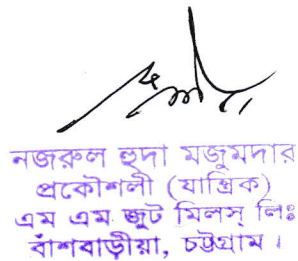 নজরুল হুদা মজুমদার
প্রকৌশলী (যান্ত্রিক)
এম এম জুট মিলস্ লিঃ
বাঁশবাড়ীয়া, চট্টগ্রাম।